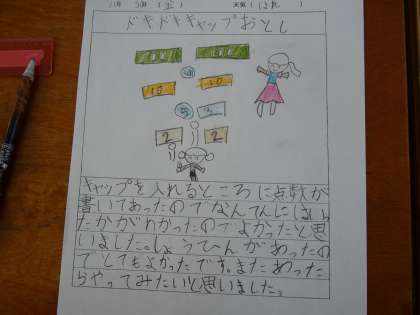 11月 5日 (金) 天気 (はれ)
ドキドキキャップおとし
10
5 3
2 2
キャップを入れるところに点数が
書いてあったのでなんてんにはいっ
たかがわかったのでよかったと思
いました。しょうひんがあったの
でとてもよかったです。またあった
らやってみたいと思いました。